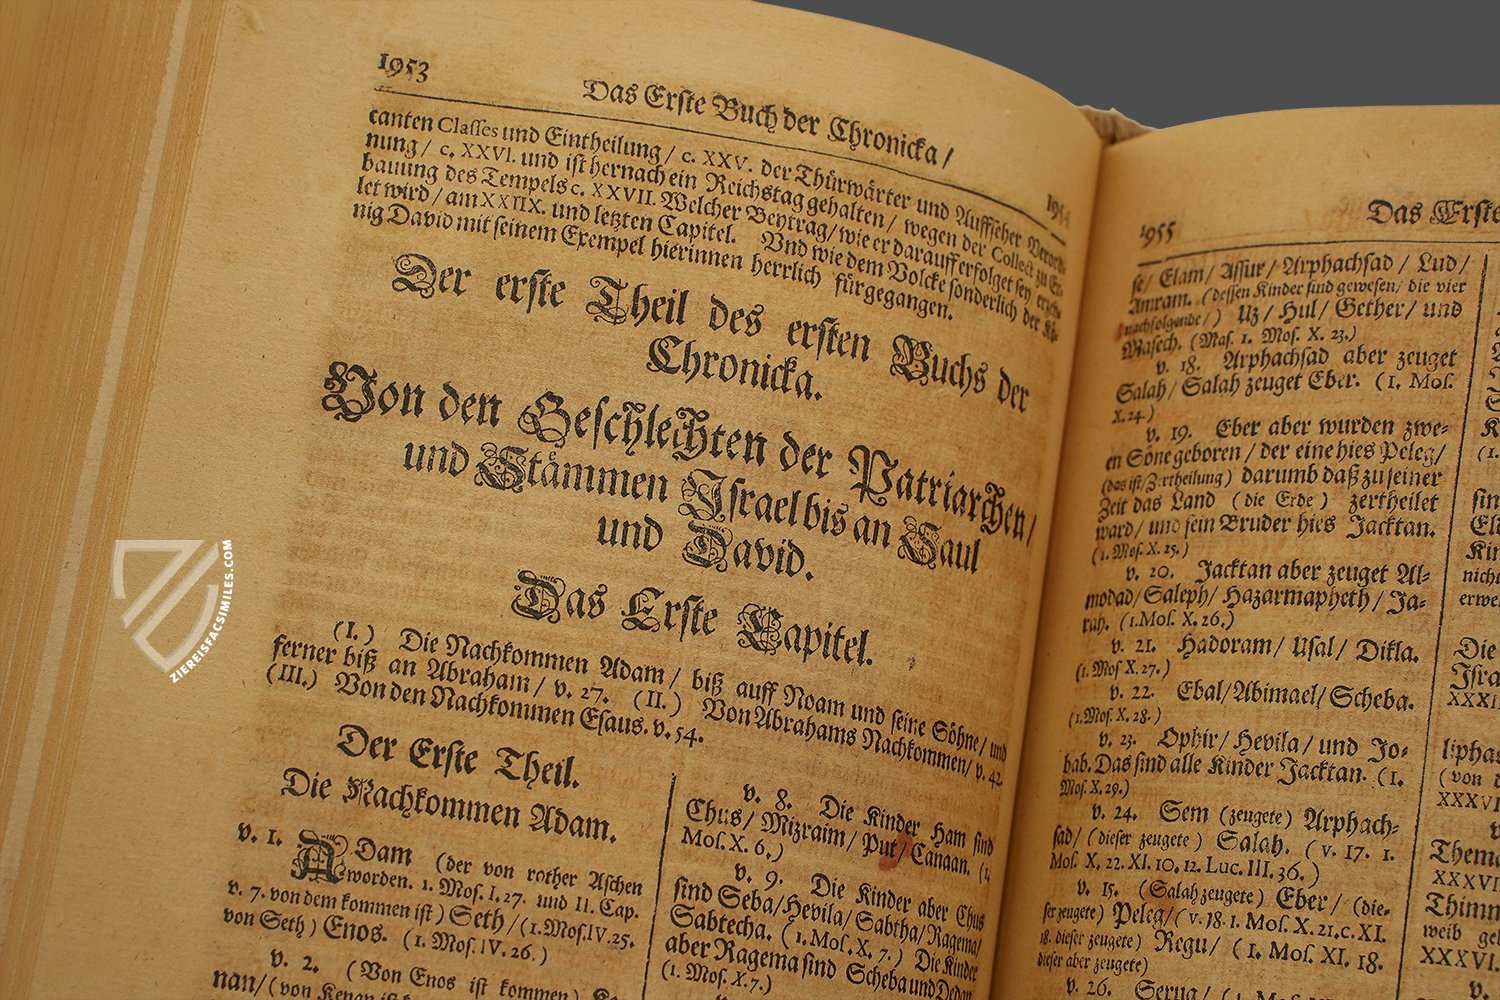 1953
Das Erste Buch der Chronicka /
canten Classes und Eintheilung / c. XXV. der Thürwärter und Auffseher Verord-
nung / c. XXVI. und ist hernach ein Reichstag gehalten / wegen der Collect zu Er-
bauung des Tempels c. XXVII. Welcher Beytrag / wie er darauff erfolget sey
let wird / am XXIIX. und letzten Capitel. Und wie dem Volcke sonderlich der Kö-
nig David mit seinem Exempel hierinnen herrlich fürgegangen.
Der erste Theil des ersten Buchs der
Chronicka.
Von den Geschlechten der Patriarchen /
und Stämmen Israel bis an Saul
und David.
Das Erste Capitel.
(I.) Die Nachkommen Adam / biß auff Noam und seine Söhne / und
ferner biß an Abraham / v. 27. (II.) Von Abrahams Nachkommen / v. 42.
(III.) Von den Nachkommen Esaus. v. 54.
Der Erste Theil.
Die Nachkommen Adam.
v. 1. ADam (der von rother Aschen
worden. 1. Mos. I. 27. und II. Cap.
v. 7. von dem kommen ist) Seth / (1. Mos. IV. 25.
von Seth) Enos. (1. Mos. IV. 26.)
v. 2. (Von Enos ist kommen)
nan / (von Kenan ist
v. 8. Die Kinder Ham sind
Chus / Mizraim / Put / Canaan. (1.
Mos. X. 6.)
v. 9. Die Kinder aber Chus
sind Seba / Hevila / Sabtha / Ragema /
Sabtecha. (1. Mos. X. 7.) Die Kinder
aber Ragema sind Scheba und Dedan
(1. Mos. X. 7.)
1955
Das Erste
se / Elam / Assur / Arphachsad / Lud /
Amram. (dessen Kinder sind gewesen / die vier
nachfolgende /) Uz / Hul / Gether / und
Masech. (Mas. 1. Mos. X. 23.)
v. 18. Arphachsad aber zeuget
Salah / Salah zeuget Eber. (1. Mos.
X. 24.)
v. 19. Eber aber wurden zwe-
en Söne geboren / der eine hies Peleg /
(das ist / Zertheilung) darumb daß zu seiner
Zeit das Land (die Erde) zertheilet
ward / und sein Bruder hies Jacktan.
(1. Mos. X. 25.)
v. 20. Jacktan aber zeuget Al-
modad / Saleph / Hazarmapheth / Ja-
rah. (1. Mos. X. 26.)
v. 21. Hadoram / Usal / Dikla.
(1. Mos X. 27.)
v. 22. Ebal / Abimael / Scheba.
(1. Mos. X. 28.)
v. 23. Ophir / Hevila / und Jo-
bab. Das sind alle Kinder Jacktan. (1.
Mos. X. 29.)
v. 24. Sem (zeugete) Arphach-
sad / (dieser zeugete) Salah. (v. 17. 1.
Mos. X. 22. XI. 10, 12. Luc. III. 36.)
v. 15. (Salah zeugete) Eber / (die-
ser zeugete) Peleg / (v. 18. 1. Mos. X. 21. c. XI.
18. dieser zeugete) Regu / (1. Mos. XI. 18.
dieser aber zeugete)
v. 26. Serug /
nicht
Die
XXXVI
(von
XXXVI
XXXVI
weib
XXXVI.
ZIEREISFACSIMILES.COM